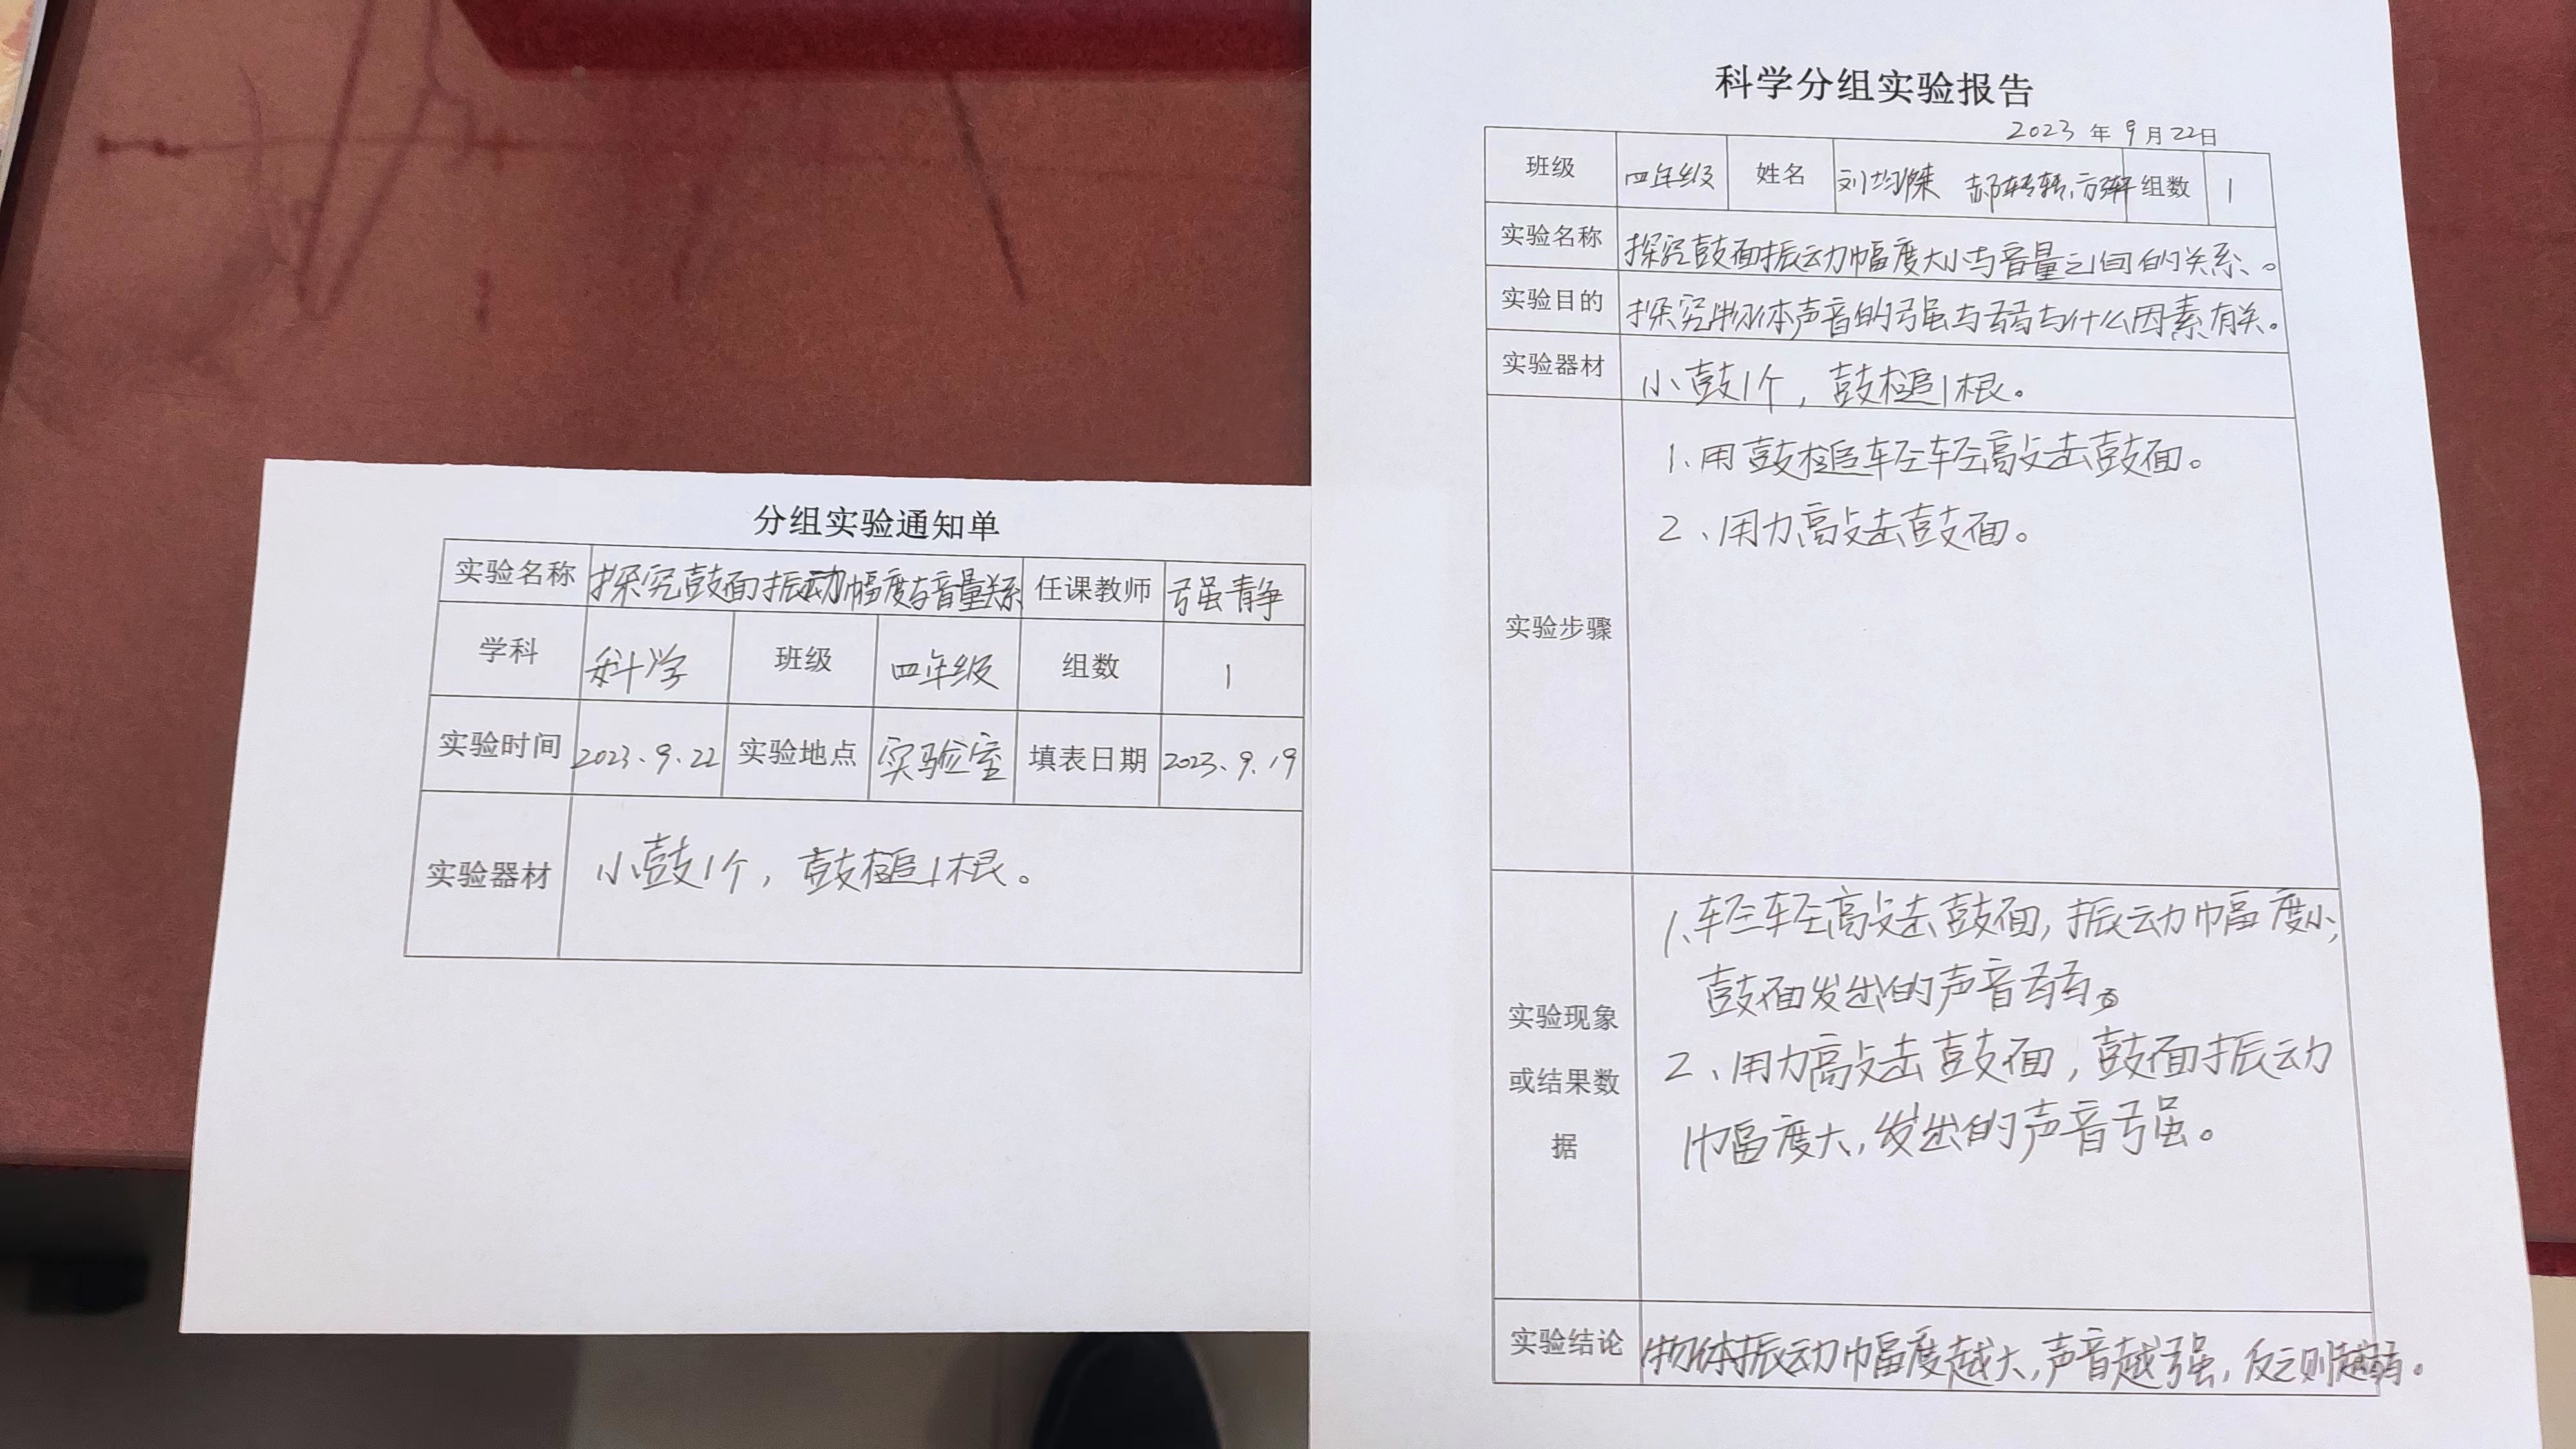 分组实验通知单
实验名称 探究鼓面振动幅度与音量关系 任课教师 强青静
学科 科学 班级 四年级 组数 1
实验时间 2023、9、22 实验地点 实验室 填表日期 2023、9、19
实验器材 小鼓1个，鼓槌1根。
科学分组实验报告
2023 年 9 月 22日
班级 四年级 姓名 刘均 组数 1
实验名称 探究鼓面振动幅度大小与音量之间的关系。
实验目的 探究物体声音的强与弱与什么因素有关。
实验器材 小鼓1个，鼓槌1根。
实验步骤
1、用鼓槌轻轻敲击鼓面。
2、用力敲击鼓面。
实验现象
或结果数
据
1、轻轻敲击鼓面，振动幅度小，
鼓面发出的声音弱。
2、用力敲击鼓面，鼓面振动
幅度大，发出的声音强。
实验结论 物体振动幅度越大，声音越强，反之则越弱。